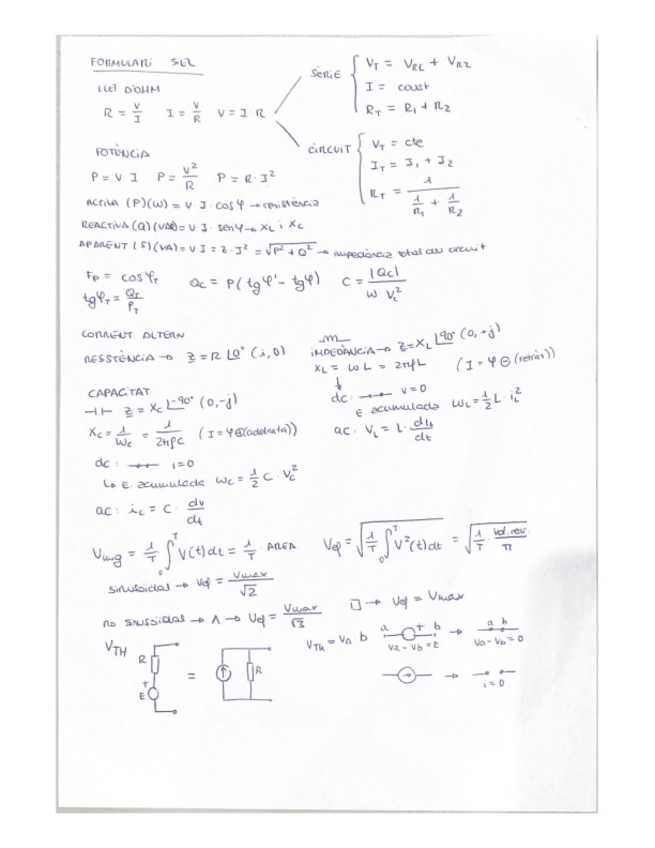 FORMULARI SEL
LLEI D'OHM
R = V/I   I = V/R   V = I·R
SÈRIE { V_T = V_R1 + V_R2
I = const
R_T = R_1 + R_2
CIRCUIT { V_T = cte
I_T = I_1 + I_2
R_T = 1/(1/R_1 + 1/R_2)
POTÈNCIA
P = V·I   P = V²/R   P = R·I²
ACTIVA (P)(W) = V·I·cosφ → resistència
REACTIVA (Q)(VAR) = V·I·senφ → X_L i X_C
APARENT (S)(VA) = V I = Z·I² = √(P² + Q²) → impedància total del circuit
F_P = cosφ_T   Q_C = P(tgφ' - tgφ)   C = |Q_C|/(W·V_C²)
tgφ_T = Q_T/P_T
CORRENT ALTERN
RESSTÈNCIA → Z = R ∟0° (i,0)
IMPEDÀNCIA → Z = X_L ∟90° (0,+j)
X_L = ωL = 2πfL   (I = φ ⊖ (retràs))
dc: v=0
E. acumulada W_L = 1/2 L i_L²
ac: V_L = L·dI_L/dt
CAPACITAT
Z = X_C ∟-90° (0,-j)
X_C = 1/ωC = 1/2πfC   (I = φ⊕(adelanta))
dc: i=0
↳ E. acumulada W_C = 1/2 C·V_C²
ac: i_C = C·dv/dt
V_mg = 1/T ∫₀ᵀ V(t)dt = 1/T AREA   V_ef = √(1/T ∫₀ᵀ V²(t)dt) = √(1/T · vol.rev/π)
sinusoidal → V_ef = Vmax/√2
no sinusoidal → Λ → V_ef = Vmax/√3   ⊓ → V_ef = Vmax
V_TH   R   + E   =   R
V_TH = Va b   a + b   Va - Vb = E   →   a b   Va - Vb = 0
→   i=0